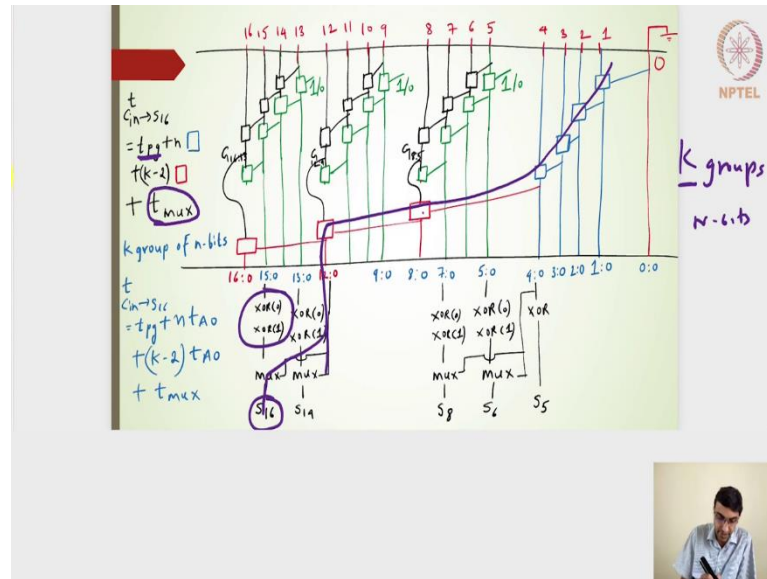 16 15 14 13 12 11 10 9 8 7 6 5 4 3 2 1
0
NPTEL
1/0 1/0 1/0
t
Cin→S16
= tpg + n
+(k-2)
+ tmux
K groups
N-bits
K group of n-bits
16:0 15:0 13:0 12:0 9:0 8:0 7:0 5:0 4:0 3:0 2:0 1:0 0:0
t
Cin→S16
= tpg + n tAO
+(k-2) tAO
+ tmux
XOR(0) XOR(0) XOR(0) XOR(0) XOR
XOR(1) XOR(1) XOR(1) XOR(1)
mux mux mux mux
S16 S14 S8 S6 S5